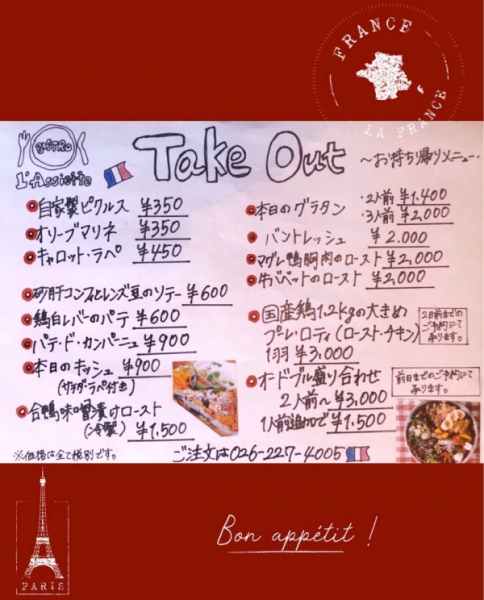 FRANCE
LA FRANCE
BISTRO
L'Assiette
Take Out
～お持ち帰りメニュー
自家製ピクルス ¥350
オリーブマリネ ¥350
キャロット・ラペ ¥450
砂肝コンフィとレンズ豆のソテー ¥600
鶏白レバーのパテ ¥600
パテ・ド・カンパーニュ ¥900
本日のキッシュ ¥900
(サラダ・ラペ付き)
合鴨味噌漬けロースト
(冷製) ¥1,500
※価格は全て税別です。
本日のグラタン ・2人前 ¥1,400
・3人前 ¥2,000
バントレッシュ ¥2.000
マグレ鴨胸肉のロースト ¥2,000
牛バベットのロースト ¥2,000
国産鶏1.2kgの大きめ
プーレ・ロティ(ロースト・チキン)
1羽 ¥3,000
2日前までの
ご予約にて
承ります。
オードブル盛り合わせ
2人前～ ¥3,000
1人前追加で ¥1,500
前日までのご予約にて
承ります。
ご注文は026-227-4005
Bon appétit !
PARIS